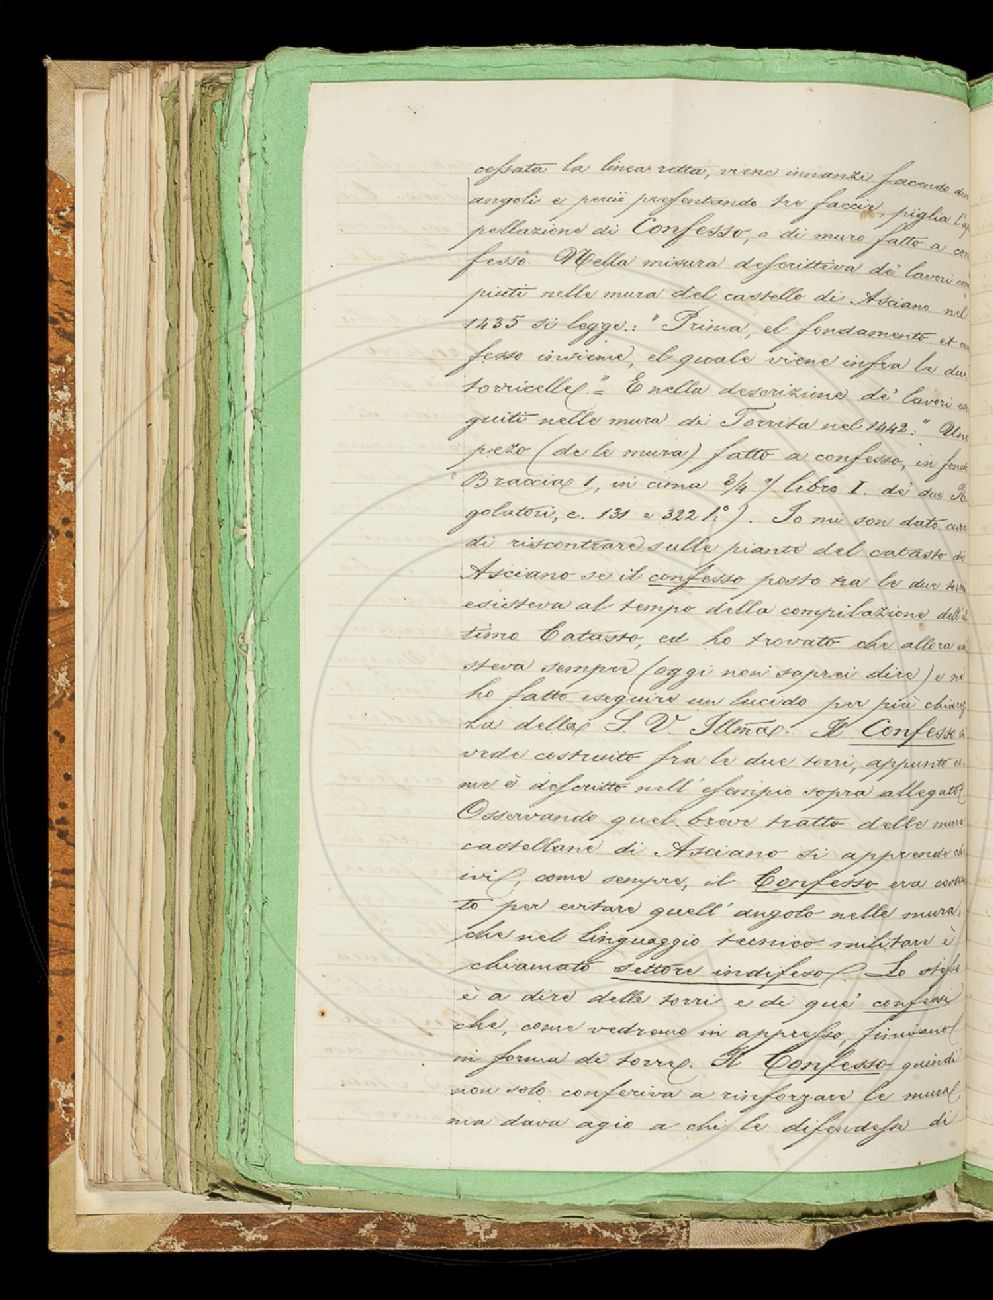 cessata la linea retta, viene innanzi facendo due
angoli e perciò presentando tre faccie, piglia l'ap
pellazione di Confesso, o di muro fatto a con
fesso. Nella misura descrittiva de' lavori com
piuti nelle mura del castello di Asciano nel
1435 si legge: " Prima, el fondamento et con
fesso insieme, el quale viene infra le due
torricelle". = E nella descrizione de' lavori ese
guiti nelle mura di Torrita nel 1442: " Uno
pezo (de le mura) fatto a confesso, in fondo
Braccia 1, in cima 3/4 " libro I. de' due Re
golatori, c. 131 e 322 t.º). Io mi son dato cura
di riscontrare sulle piante del catasto di
Asciano se il confesso posto tra le due torri
esisteva al tempo della compilazione dell'ul
timo Catasto, ed ho trovato che allora esi
steva sempre (oggi non saprei dire) e ne
ho fatto eseguire un lucido per più chiarez
za della S. V. Illma. Il Confesso si
vede costruito fra le due torri, appunto co
me è descritto nell' esempio sopra allegato
Osservando quel breve tratto delle mura
castellane di Asciano si apprende che
ivi, come sempre, il Confesso era costrui
to per evitare quell' angolo nelle mura,
che nel linguaggio tecnico militare è
chiamato settore indifeso. Lo stesso
è a dire delle torri e de que' confessi
che, come vedremo in appresso, finivano
in forma di torre. Il Confesso quindi
non solo conferiva a rinforzare le mura,
ma dava agio a chi le difendesse di